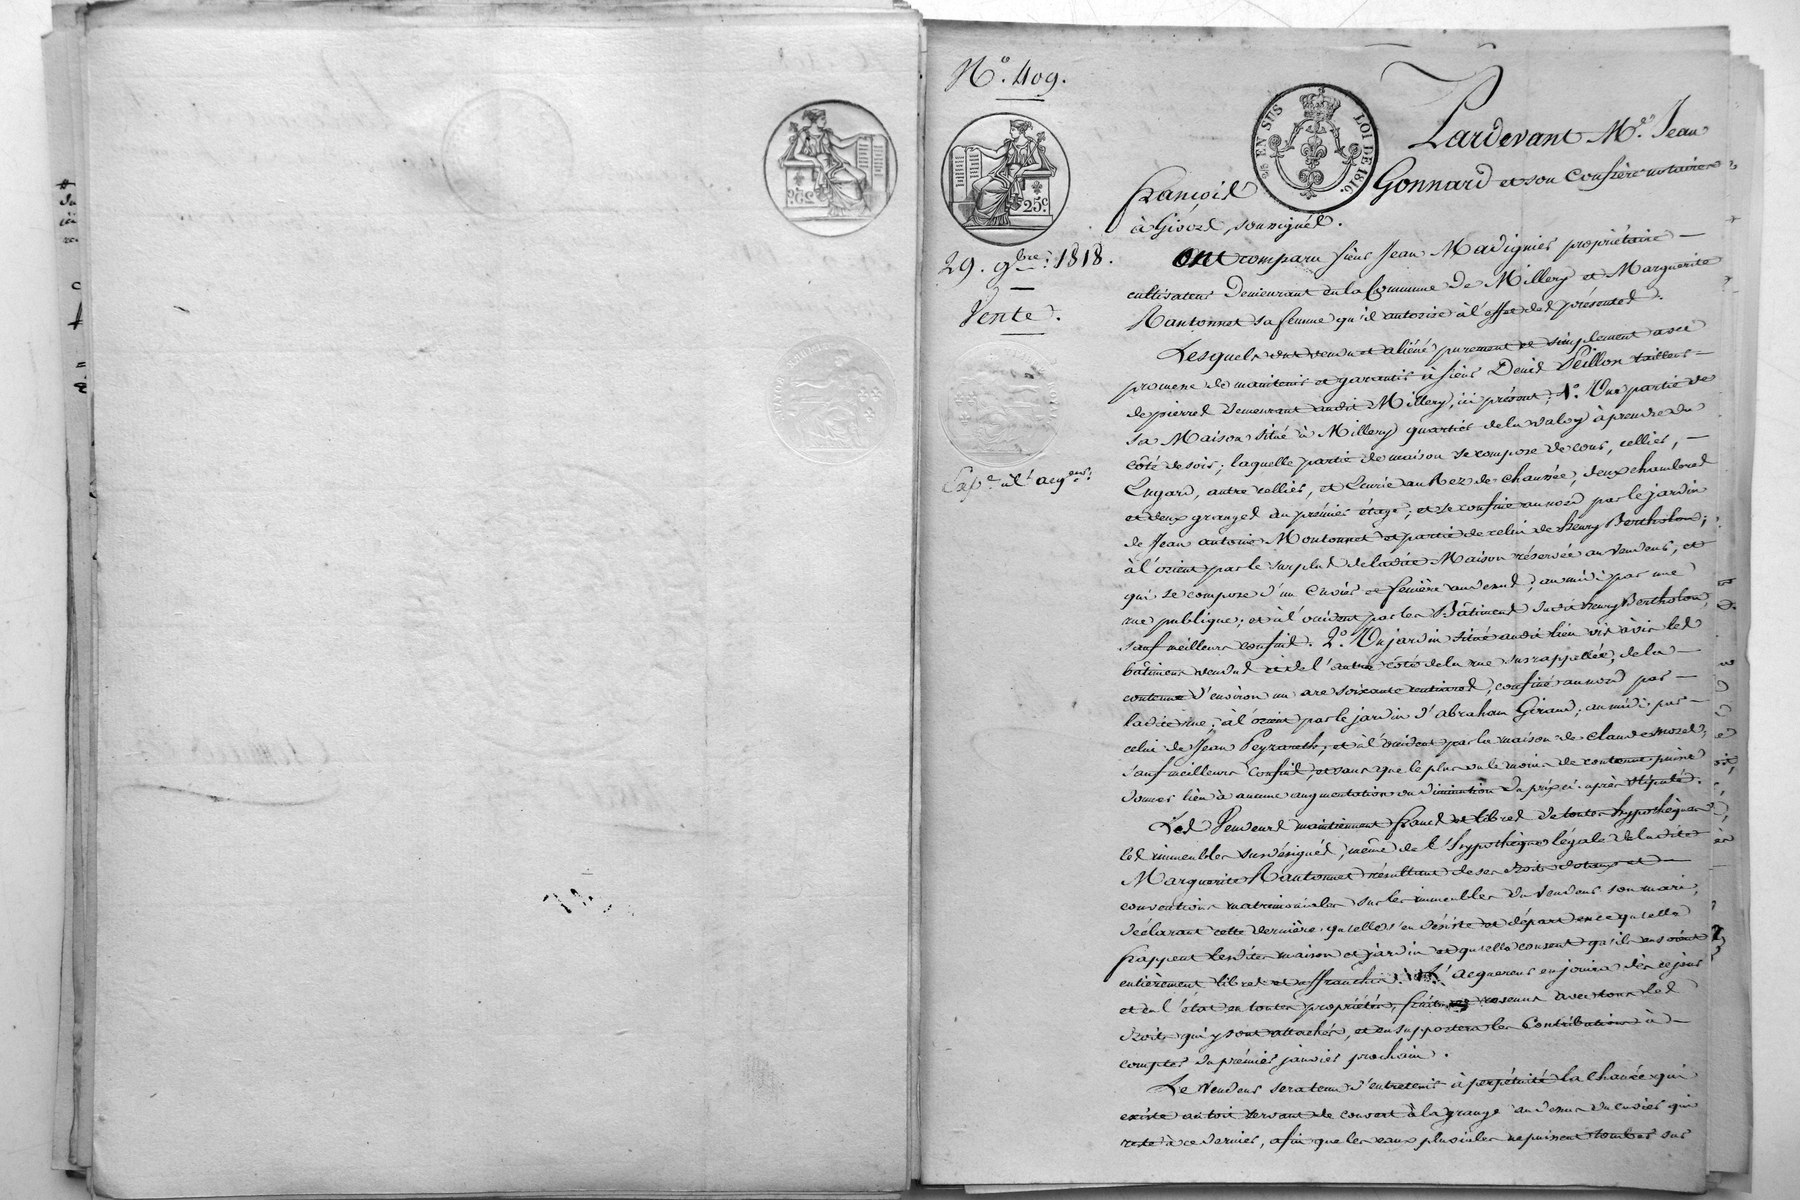 N.° 409.
EN SUS LOI DE 1816.
25.c
25.c
29. 9bre. 1818.
Vente.
Pardevant M.e Jean
François Gonnard et son Confrère notaires
à Givors, soussignés.
Ont comparu sieur Jean Madignier propriétaire
cultivateur demeurant en la Commune de Millery et Marguerite
Rantonnet sa femme qu'il autorise à l'effet des présentes.
Lesquels ont vendu et aliéné purement et simplement avec
promesse de maintenir et garantir à sieur Denis Peillon tailleur
de pierres demeurant audit Millery, ici présent; 1.° Une partie de
sa Maison situé à Millery quartier de la valoy à prendre du
côté de soir; laquelle partie de maison se compose de cour, cellier,
Engard, autre cellier, et Ecurie au Rez de chaussée, deux chambres
et deux granges au prémier étage; et se confine au nord par le jardin
de Jean antoine Moutonnet et partie de celui de henry Bertholon;
à l'orient par le surplus de ladite Maison réservée au vendeur, et
qui se compose d'un Cuvier et fenière au dessus; au midi par une
rue publique; et à l'occident par les Bâtiments dudit henry Bertholon,
sauf meilleurs confins. 2.° Un jardin situé audit lieu vis à vis les
bâtimens vendus et de l'autre côté de la rue susrappellée, de la
contenue d'environ un are soixante centiares, confiné au nord par
ladite rue; à l'orient par le jardin d'abraham Giraud; au midi par
celui de Jean Peyrareth; et à l'occident par la maison de claude morel;
sauf meilleurs Confins, et sans que le plus ou le moins de contenue puisse
donner lieu à aucune augmentation ou diminution du prix ci-après stipulé.
Les Vendeurs maintiennent francs et libres de toutes hypothèques
les immeubles susdésignés, même de l'hypothèque légale de ladite
Marguerite Rantonnet résultant de ses droits dotaux et
conventions matrimoniales sur les immeubles du vendeur son mari,
déclarant cette dernière qu'elle s'en désiste et départ en ce qu'elle
frappent lesdites maison et jardin et qu'elle consent qu'ils en soient
entièrement libres et affranchis. L'acquéreur en jouira dès ce jour
et en l'état en toutes propriétés, fruits et revenus avec tous les
droits qui y sont attachés, et en supportera les Contributions à
compter du prémier janvier prochain.
Le Vendeur sera tenu d'entretenir à perpétuité la chanée qui
existe au toit servant de couvert à la grange au dessus du cuvier qui
reste à ce dernier, afin que les eaux pluviales ne puissent tomber sur